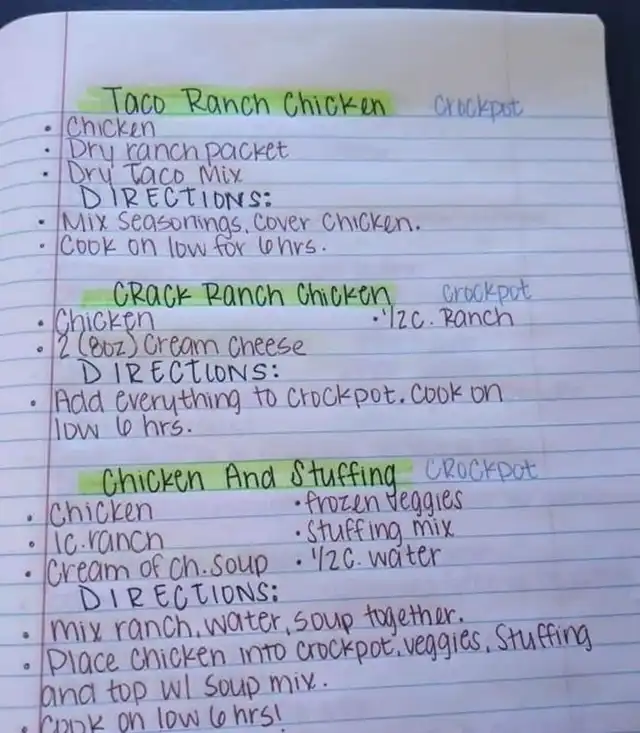 Taco Ranch Chicken Crockpot
• Chicken
• Dry ranch packet
• Dry Taco Mix
DIRECTIONS:
• Mix seasonings, cover chicken.
• Cook on low for 6 hrs.
CRack Ranch Chicken Crockpot
• Chicken • 1/2 c. Ranch
• 2 (8oz) Cream Cheese
DIRECTIONS:
• Add everything to crockpot. Cook on
low 6 hrs.
Chicken And Stuffing CROCKpot
• Chicken • frozen veggies
• 1c. ranch • Stuffing mix
• Cream of Ch. Soup • 1/2 c. water
DIRECTIONS:
• Mix ranch, water, soup together.
• Place Chicken into crockpot, veggies, Stuffing
and top w/ soup mix.
• Cook on low 6 hrs!